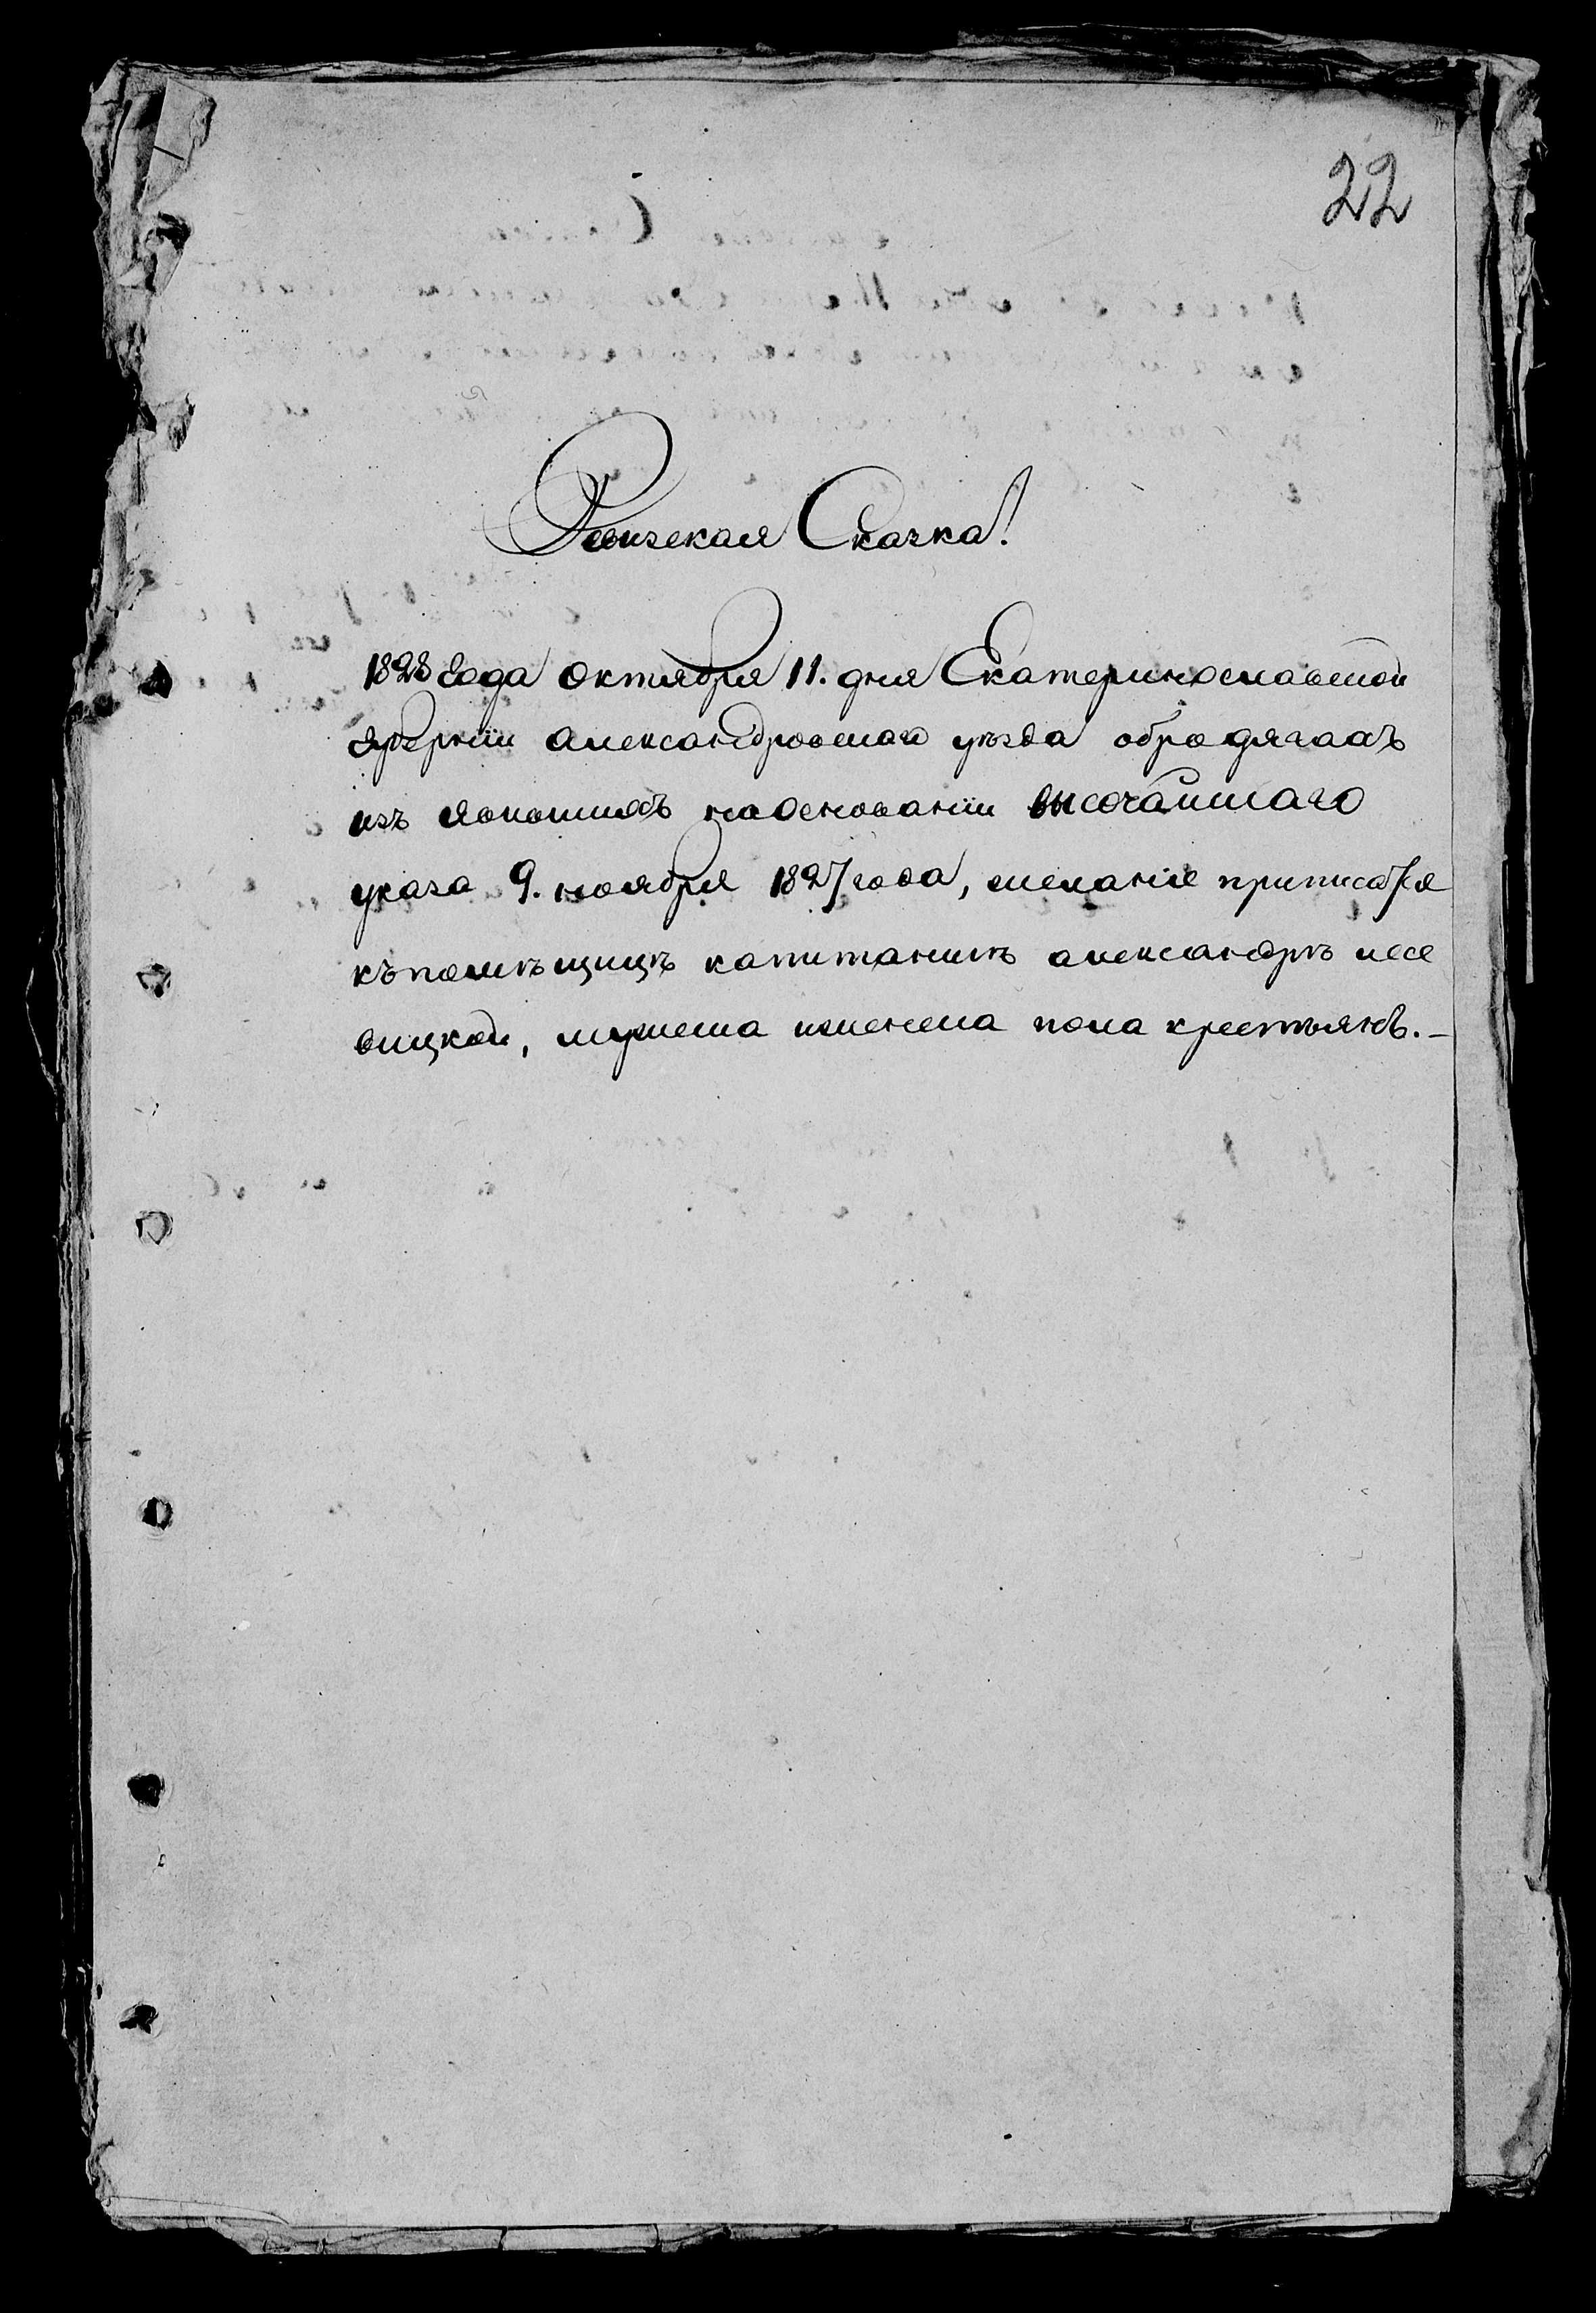 22
Ревизская Сказка!
1828 года октября 11. дня Екатеринославской
губернии александровскаго уезда о бродягахъ
изъ явившихъ на основании высочайшаго
указа 9. ноября 1827 года, желание приписатся
къ помѣщицѣ капитаншѣ александрѣ лесе
вицкой, мужеска и женска пола крестьянъ.–